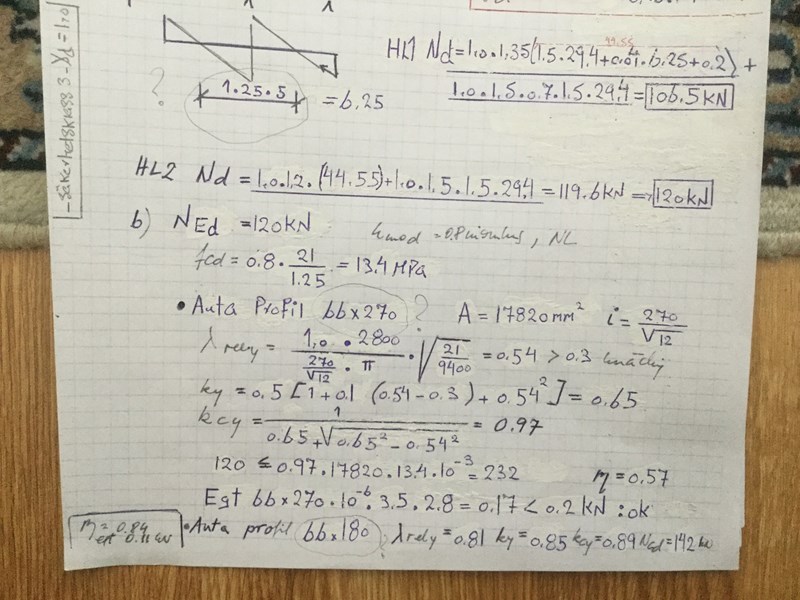 - Säkerhetsklass 3 - γd = 1,0
HL1 Nd = 1,0 . 1,35 (1.5 . 29,4 + 0.01 . 6.25 + 0.2) +
44.55
1,0 . 1,5 . 0.7 . 1.5 . 29,4 = 106.5 KN
? 1.25 . 5 = 6.25
HL2 Nd = 1,0 . 1.2 . (44.55) + 1,0 . 1.5 . 1.5 . 29.4 = 119.6 KN => 120 KN
b) NEd = 120 KN
kmod = 0.8 , NL
fcd = 0.8 . 21/1.25 = 13.4 MPa
• Anta Profil 66 x 270 ? A = 17820 mm² i = 270/√12
λrely = 1,0 . 2800 / (270/√12 . π) . √(21/9400) = 0.54 > 0.3
ky = 0.5 [1 + 0.1 (0.54 - 0.3) + 0.54²] = 0.65
kcy = 1 / (0.65 + √(0.65² - 0.54²)) = 0.97
120 ≤ 0.97 . 17820 . 13.4 . 10⁻³ = 232 η = 0.57
Egt 66 x 270 . 10⁻⁶ . 3.5 . 2.8 = 0.17 < 0.2 KN : ok
η = 0.84
egt 0.11 kN
• Anta profil 66 x 180 λrely = 0.81 ky = 0.85 kcy = 0.89 Ncd = 142 kN